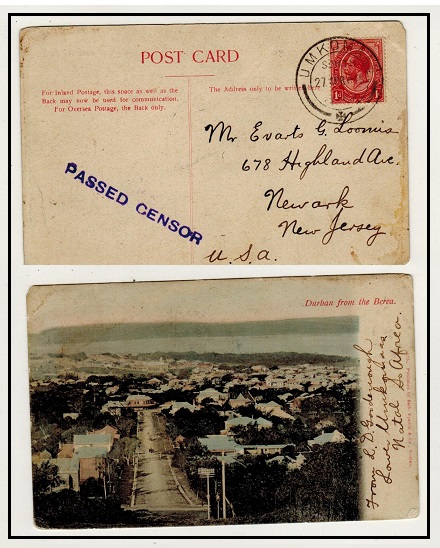 POST CARD
For Inland Postage, this space as well as the
Back may now be used for communication.
For Oversea Postage, the Back only.
The Address only to be written here
UMKOM
27
1d
PASSED CENSOR
Mr Evarts G. Loomis
678 Highland Ave.
Newark
New Jersey
U.S.A.
Durban from the Berea.
From L. D. Goodenough
Lower Umkomaas
Natal So Africa.